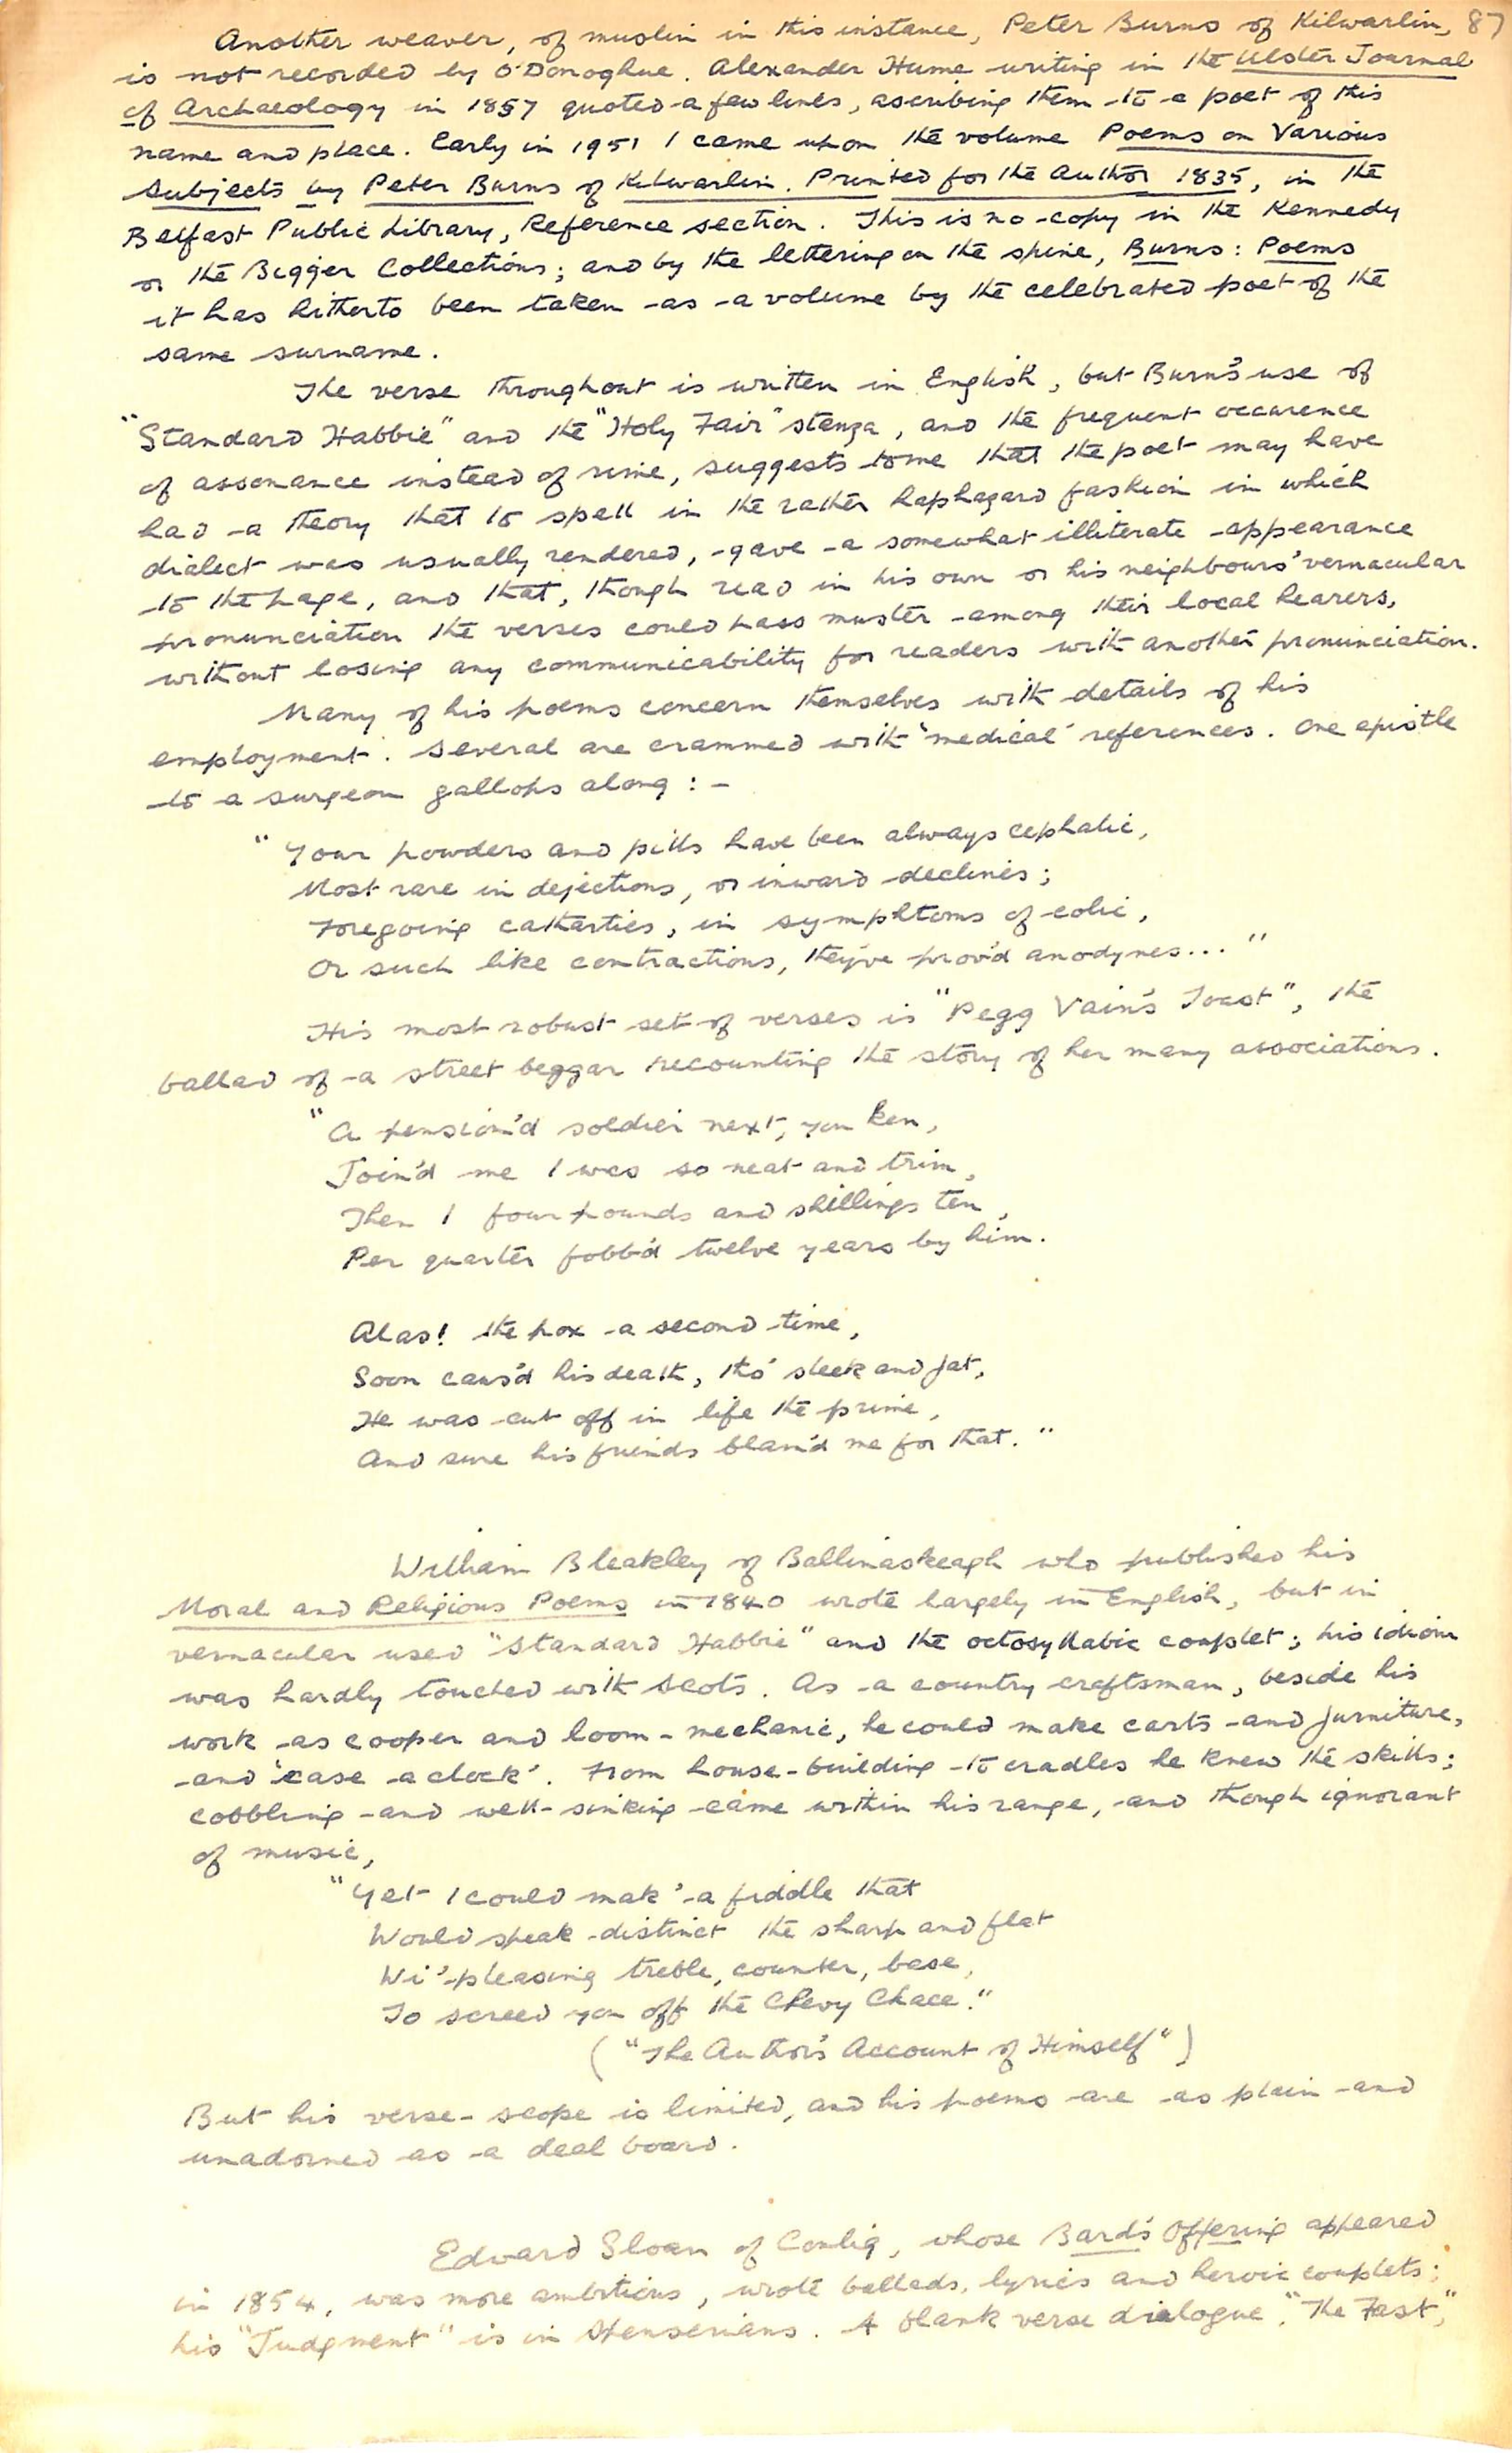 Another weaver, of muslin in this instance, Peter Burns of Kilwarlin, 87
is not recorded by O'Donoghue. Alexander Hume writing in the Ulster Journal
of Archaeology in 1857 quoted a few lines, ascribing them to a poet of this
name and place. Early in 1951 I came upon the volume Poems on Various
Subjects by Peter Burns of Kilwarlin. Printed for the Author 1835, in the
Belfast Public Library, Reference section. This is no copy in the Kennedy
or the Bigger Collections; and by the lettering on the spine, Burns: Poems
it has hitherto been taken as a volume by the celebrated poet of the
same surname.
The verse throughout is written in English, but Burns's use of
"Standard Habbie" and the "Holy Fair" stanza, and the frequent occurence
of assonance instead of rime, suggests to me that the poet may have
had a theory that to spell in the rather haphazard fashion in which
dialect was usually rendered, gave a somewhat illiterate appearance
to the page, and that, though read in his own or his neighbours' vernacular
pronunciation the verses could pass muster among their local hearers,
without losing any communicability for readers with another pronunciation.
Many of his poems concern themselves with details of his
employment. Several are crammed with "medical" references. One epistle
to a surgeon gallops along: -
"Your powders and pills have been always cephalic,
Most rare in dejections, or inward declines;
Foregoing cathartics, in symphtoms of colic,
Or such like contractions, they've prov'd anodynes..."
His most robust set of verses is "Pegg Vain's Toast", the
ballad of a street beggar recounting the story of her many associations.
"A pension'd soldier next, you ken,
Join'd me I was so neat and trim,
Then I four pounds and shillings ten,
Per quarter fobb'd twelve years by him.
Alas! the pox a second time,
Soon caus'd his death, tho' sleek and fat,
He was cut off in life the prime,
And sure his friends blam'd me for that."
William Bleakley of Ballinaskeagh who published his
Moral and Religious Poems in 1840 wrote largely in English, but in
vernacular used "Standard Habbie" and the octosyllabic couplet; his idiom
was hardly touched with Scots. As a country craftsman, beside his
work as cooper and loom-mechanic, he could make carts and furniture,
and 'case a clock'. From house-building to cradles he knew the skills;
cobbling and well-sinking came within his range, and though ignorant
of music,
"Yet I could mak' a fiddle that
Would speak distinct the sharp and flat
Wi' pleasing treble, counter, base,
To screed you off the Chevy Chace."
("The Author's Account of Himself")
But his verse-scope is limited, and his poems are as plain and
unadorned as a deal board.
Edward Sloan of Conlig, whose Bard's Offering appeared
in 1854, was more ambitious, wrote ballads, lyrics and heroic couplets;
his "Judgment" is in Spenserians. A blank verse dialogue, "The Fast",